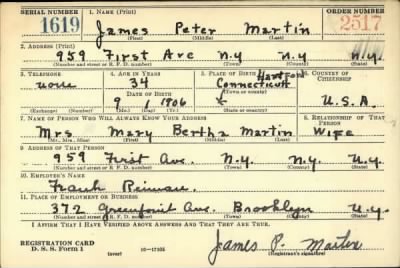 SERIAL NUMBER 1. NAME (Print) ORDER NUMBER
1619 James Peter Martin 2517
(First) (Middle) (Last)
2. ADDRESS (Print)
959 First Ave N.Y N.Y. N.Y.
(Number and street or R. F. D. number) (Town) (County) (State)
3. TELEPHONE 4. AGE IN YEARS 5. PLACE OF BIRTH 6. COUNTRY OF CITIZENSHIP
none 34 Hartford
Connecticut
DATE OF BIRTH (Town or county)
9 1 1906 U.S.A.
(Exchange) (Number) (Mo.) (Day) (Yr.) (State or country)
7. NAME OF PERSON WHO WILL ALWAYS KNOW YOUR ADDRESS 8. RELATIONSHIP OF THAT PERSON
Mrs Mary Bertha Martin Wife
(Mr., Mrs., Miss) (First) (Middle) (Last)
9. ADDRESS OF THAT PERSON
959 First Ave. N.Y. N.Y. N.Y.
(Number and street or R. F. D. number) (Town) (County) (State)
10. EMPLOYER'S NAME
Frank
11. PLACE OF EMPLOYMENT OR BUSINESS
372 Greenpoint Ave. Brooklyn N.Y.
(Number and street or R. F. D. number) (Town) (County) (State)
I AFFIRM THAT I HAVE VERIFIED ABOVE ANSWERS AND THAT THEY ARE TRUE.
REGISTRATION CARD
D. S. S. Form 1 (over) 16—17105 James P. Martin
(Registrant's signature)